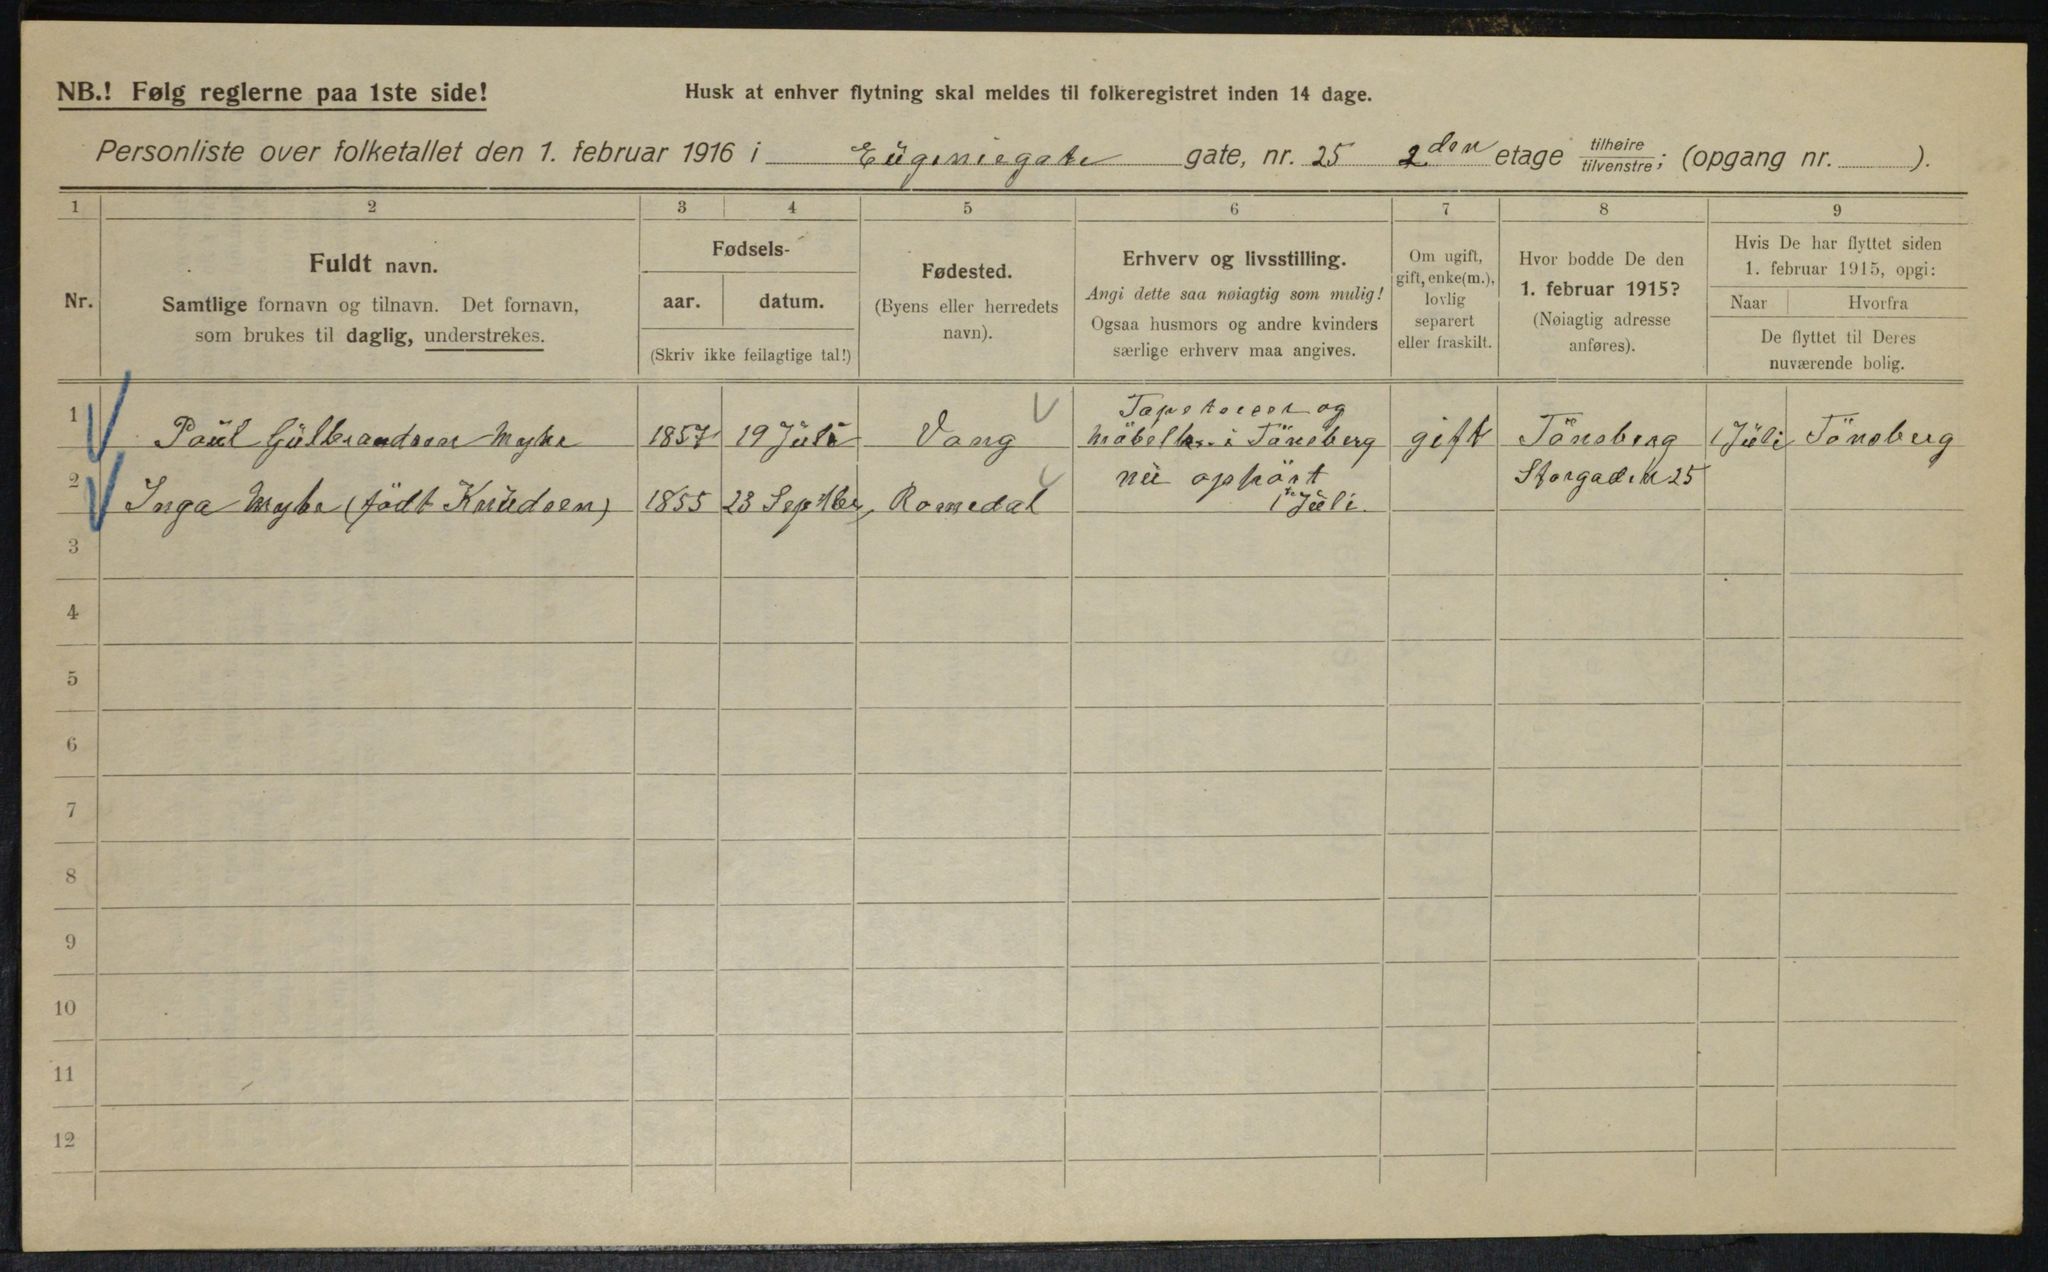 NB.! Følg reglerne paa 1ste side!
Husk at enhver flytning skal meldes til folkeregistret inden 14 dage.
Personliste over folketallet den 1. februar 1916 i Eügeniegate gate, nr. 25 2den etage tilhøire/tilvenstre; (opgang nr. ).
1 2 3 4 5 6 7 8 9
Nr.
Fuldt navn.
Samtlige fornavn og tilnavn. Det fornavn,
som brukes til daglig, understrekes.
Fødsels-
aar. datum.
(Skriv ikke feilagtige tal!)
Fødested.
(Byens eller herredets
navn).
Erhverv og livsstilling.
Angi dette saa nøiagtig som mulig!
Ogsaa husmors og andre kvinders
særlige erhverv maa angives.
Om ugift,
gift, enke(m.),
lovlig
separert
eller fraskilt.
Hvor bodde De den
1. februar 1915?
(Nøiagtig adresse
anføres).
Hvis De har flyttet siden
1. februar 1915, opgi:
Naar Hvorfra
De flyttet til Deres
nuværende bolig.
1 Paül Gülbrandsen Myhre 1857 19 Jüli Vang
Tapetserer og
Möbelh. i Tönsberg
nü ophört
1ste Jüli.
gift
Tönsberg
Storgaden 25
1 Jüli Tönsberg
2 Inga Myhre (födt Knüdsen) 1855 23 Septber Romedal
3
4
5
6
7
8
9
10
11
12